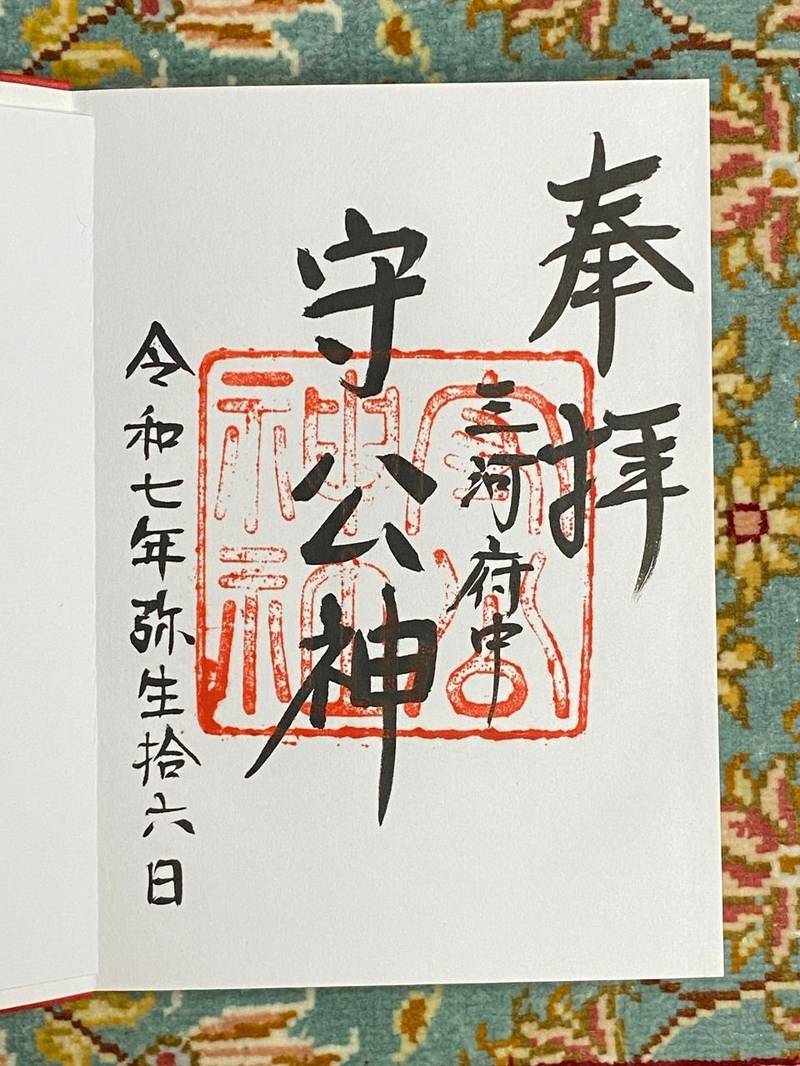 奉拝
三河府中
守公神
令和七年弥生拾六日
守公神社